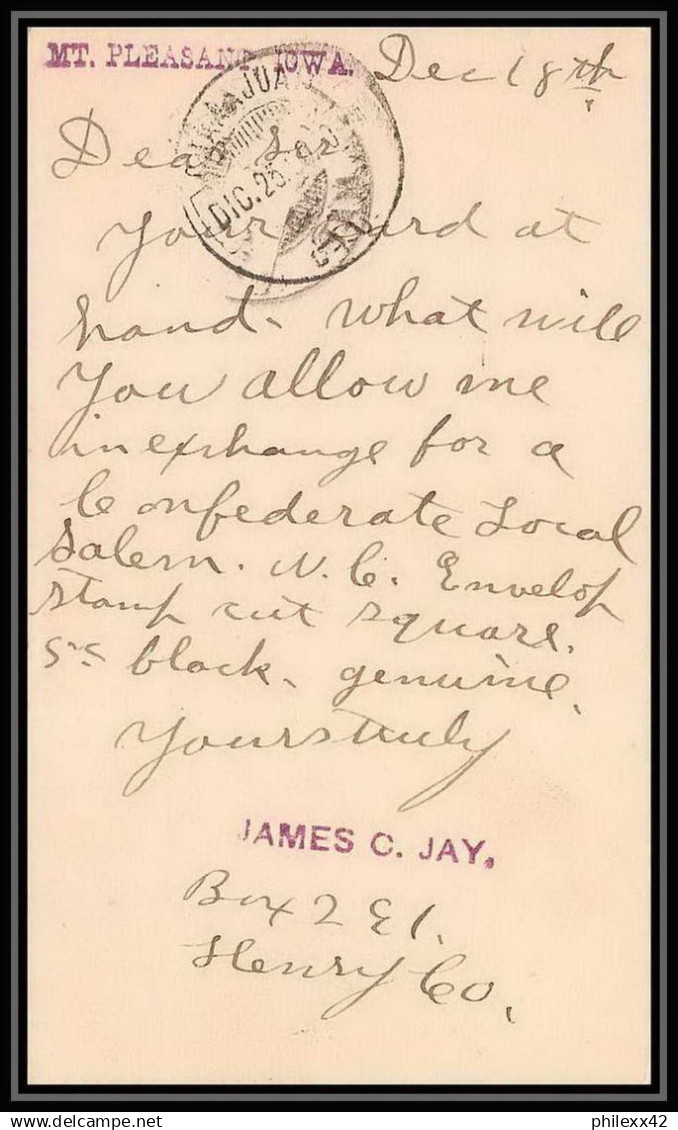 MT. PLEASANT, IOWA. Dec 18th
GUANAJUATO
DIC. 23
Dear Sir
Your Card at
hand. What will
You allow me
in exchange for a
Confederate Local
Salem. N.C. Envelop
stamp cut square.
5c black. genuine.
Yours truly
JAMES C. JAY.
Box 2
Henry Co.
www.delcampe.net
philexx42